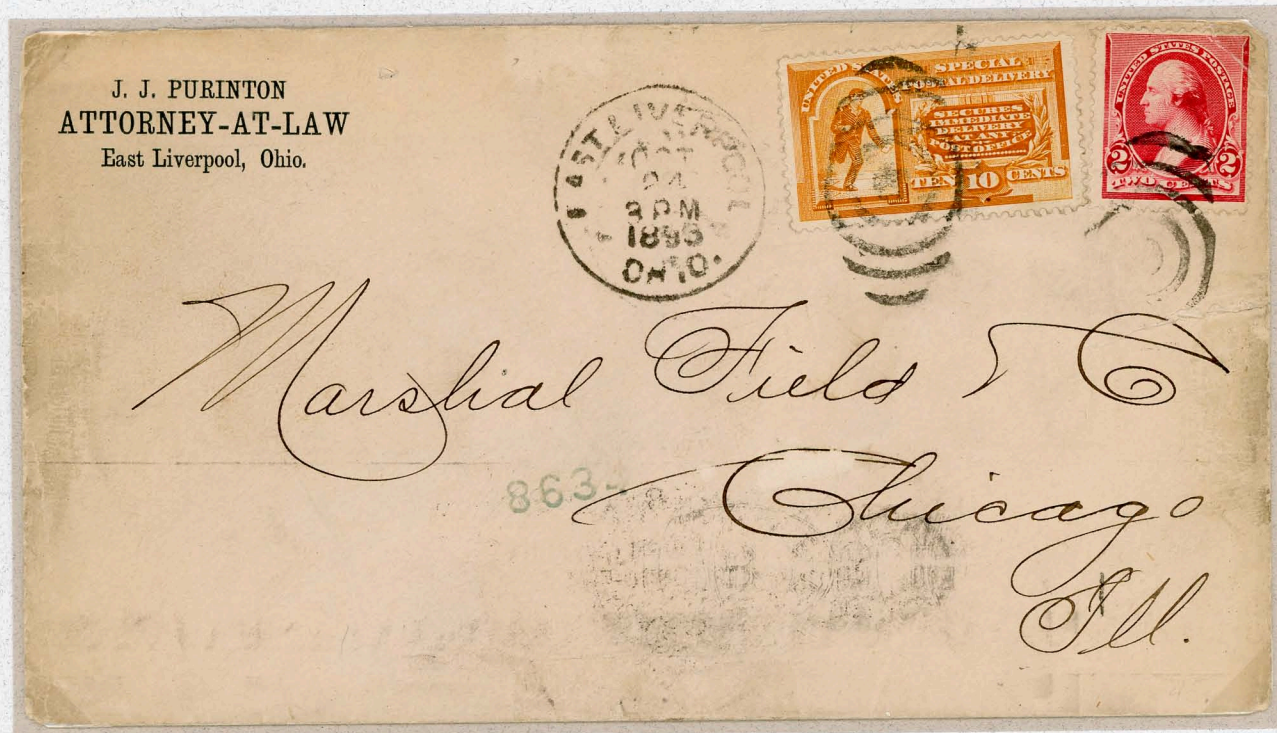 J. J. PURINTON
ATTORNEY-AT-LAW
East Liverpool, Ohio.
EAST LIVERPOOL
OCT
24
3 PM
1893
OHIO.
UNITED STATES
SPECIAL
POSTAL DELIVERY
SECURES
IMMEDIATE
DELIVERY
AT ANY
POST OFFICE
TEN 10 CENTS
UNITED STATES POSTAGE
2 2
TWO CENTS
Marshal Field & C
Chicago
Ill.
863